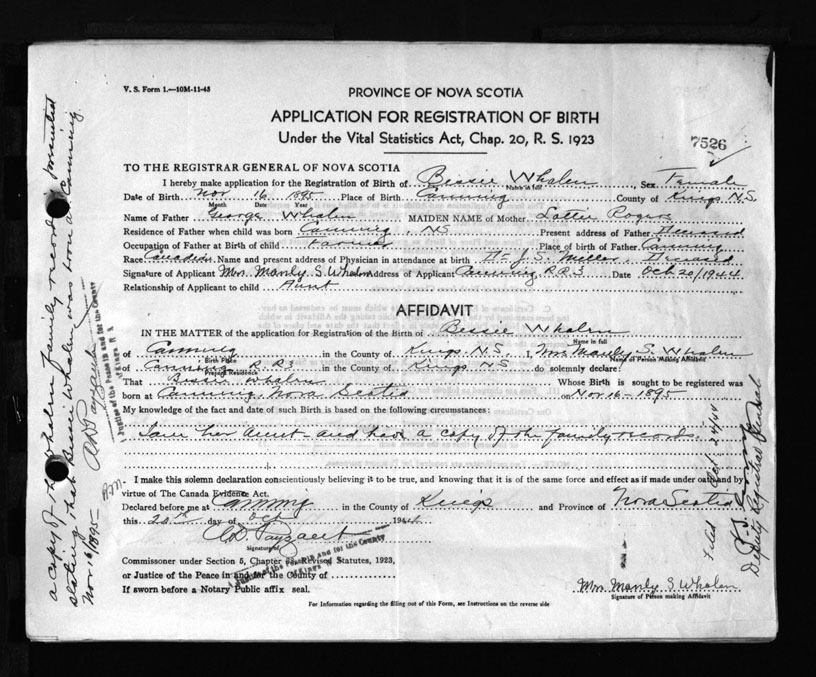 V. S. Form 1.—10M-11-43
PROVINCE OF NOVA SCOTIA
APPLICATION FOR REGISTRATION OF BIRTH
Under the Vital Statistics Act, Chap. 20, R. S. 1923
7526
TO THE REGISTRAR GENERAL OF NOVA SCOTIA
I hereby make application for the Registration of Birth of Bessie Whalen Sex Female
Name in full
Date of Birth Nov 16 1895 Place of Birth Canning County of Kings N.S.
Month Date Year
Name of Father George Whalen MAIDEN NAME of Mother Rogers
Residence of Father when child was born Canning, NS Present address of Father Deceased
Occupation of Father at Birth of child Farmer Place of birth of Father Canning
Race Canadian Name and present address of Physician in attendance at birth Dr J. S. Miller, Deceased
Signature of Applicant Mrs. Manly S. Whalen Address of Applicant Canning R.R.3 Date Oct 20/1944
Relationship of Applicant to child Aunt
AFFIDAVIT
IN THE MATTER of the application for Registration of the Birth of Bessie Whalen
Name in full
of Canning in the County of Kings N.S. I, Mrs Manly S. Whalen
Birth Place
Name of Person Making Affidavit
of Canning R.R3 in the County of Kings N.S. do solemnly declare:
Present Residence
That Bessie Whalen Whose Birth is sought to be registered was
born at Canning, Nova Scotia on Nov 16 - 1895
My knowledge of the fact and date of such Birth is based on the following circumstances:
I am her aunt and have a copy of the family records.
I make this solemn declaration conscientiously believing it to be true, and knowing that it is of the same force and effect as if made under oath and by
virtue of The Canada Evidence Act.
Declared before me at Canning in the County of Kings and Province of Nova Scotia
this 20th day of Oct 1944
Signature of
Justice of the Peace in and for the County of Kings
Commissioner under Section 5, Chapter Revised Statutes, 1923,
or Justice of the Peace in and for the County of
If sworn before a Notary Public affix seal.
Mrs Manly S Whalen
Signature of Person making Affidavit
For Information regarding the filling out of this Form, see Instructions on the reverse side
a copy of the Whalen family record presented
stating that Bessie Whalen was born at Canning
Nov 16/1895
Justice of the Peace in and for the County
of Kings N. S.
Filed Oct 24/44
Deputy Registrar